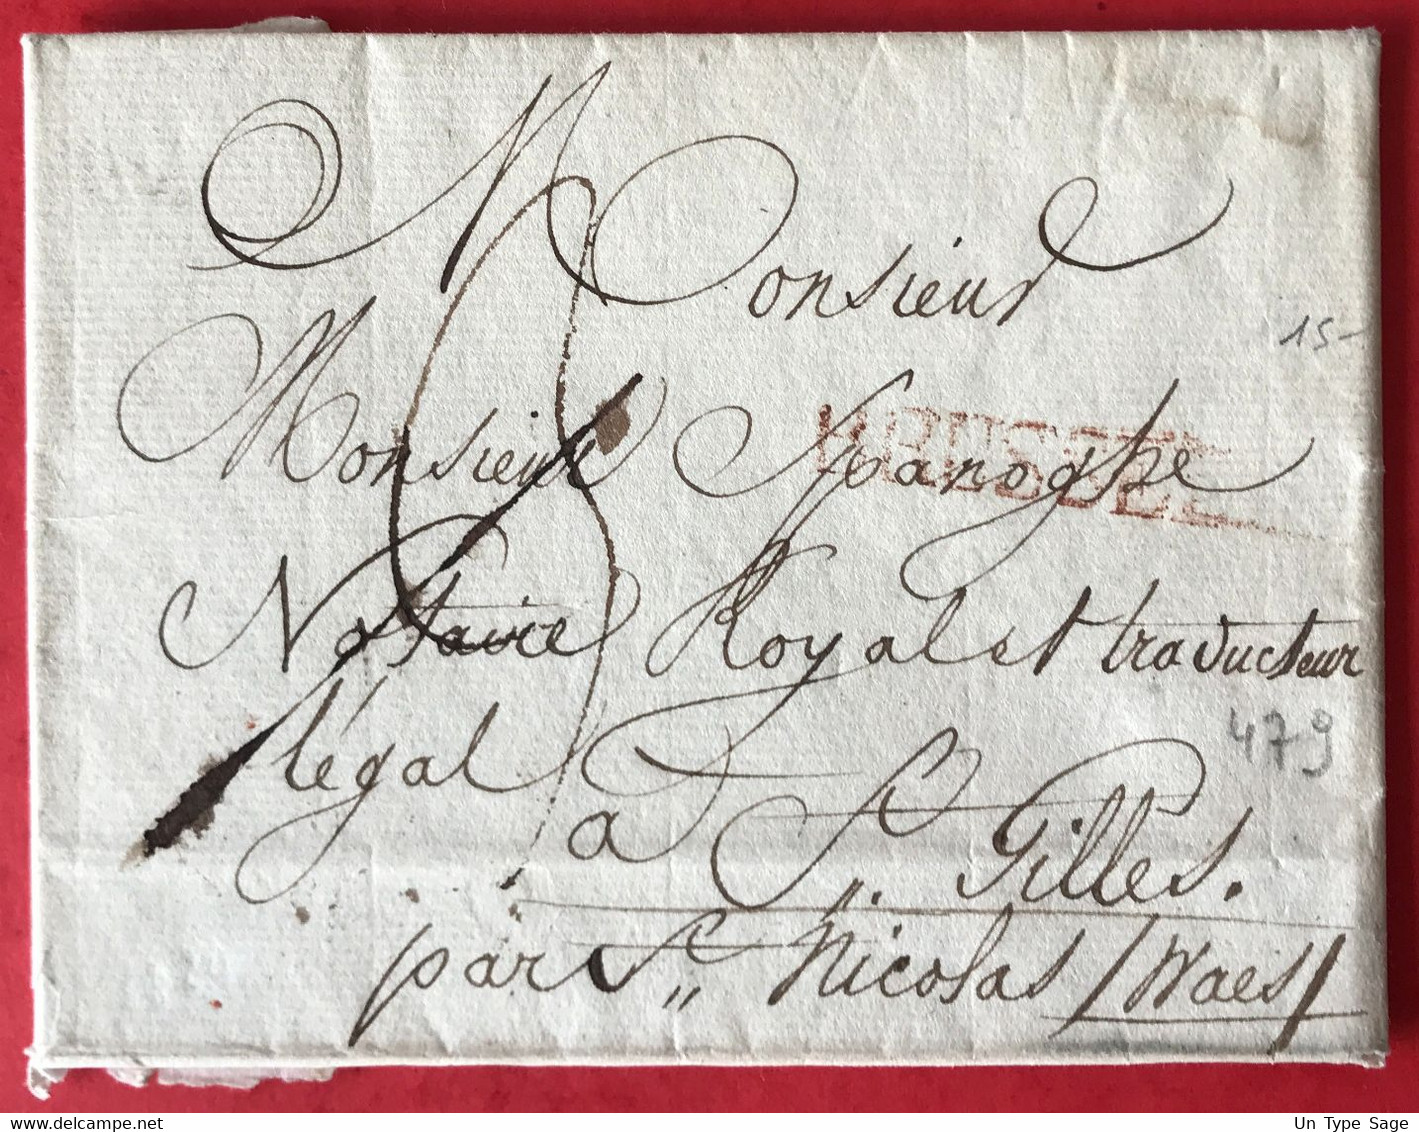 Monsieur
15-
Monsieur Spanoghe
BRUSSEL
Notaire Royal et traducteur
légal
479
a St. Gilles.
par St. Nicolas /Waes/
Un Type Sage